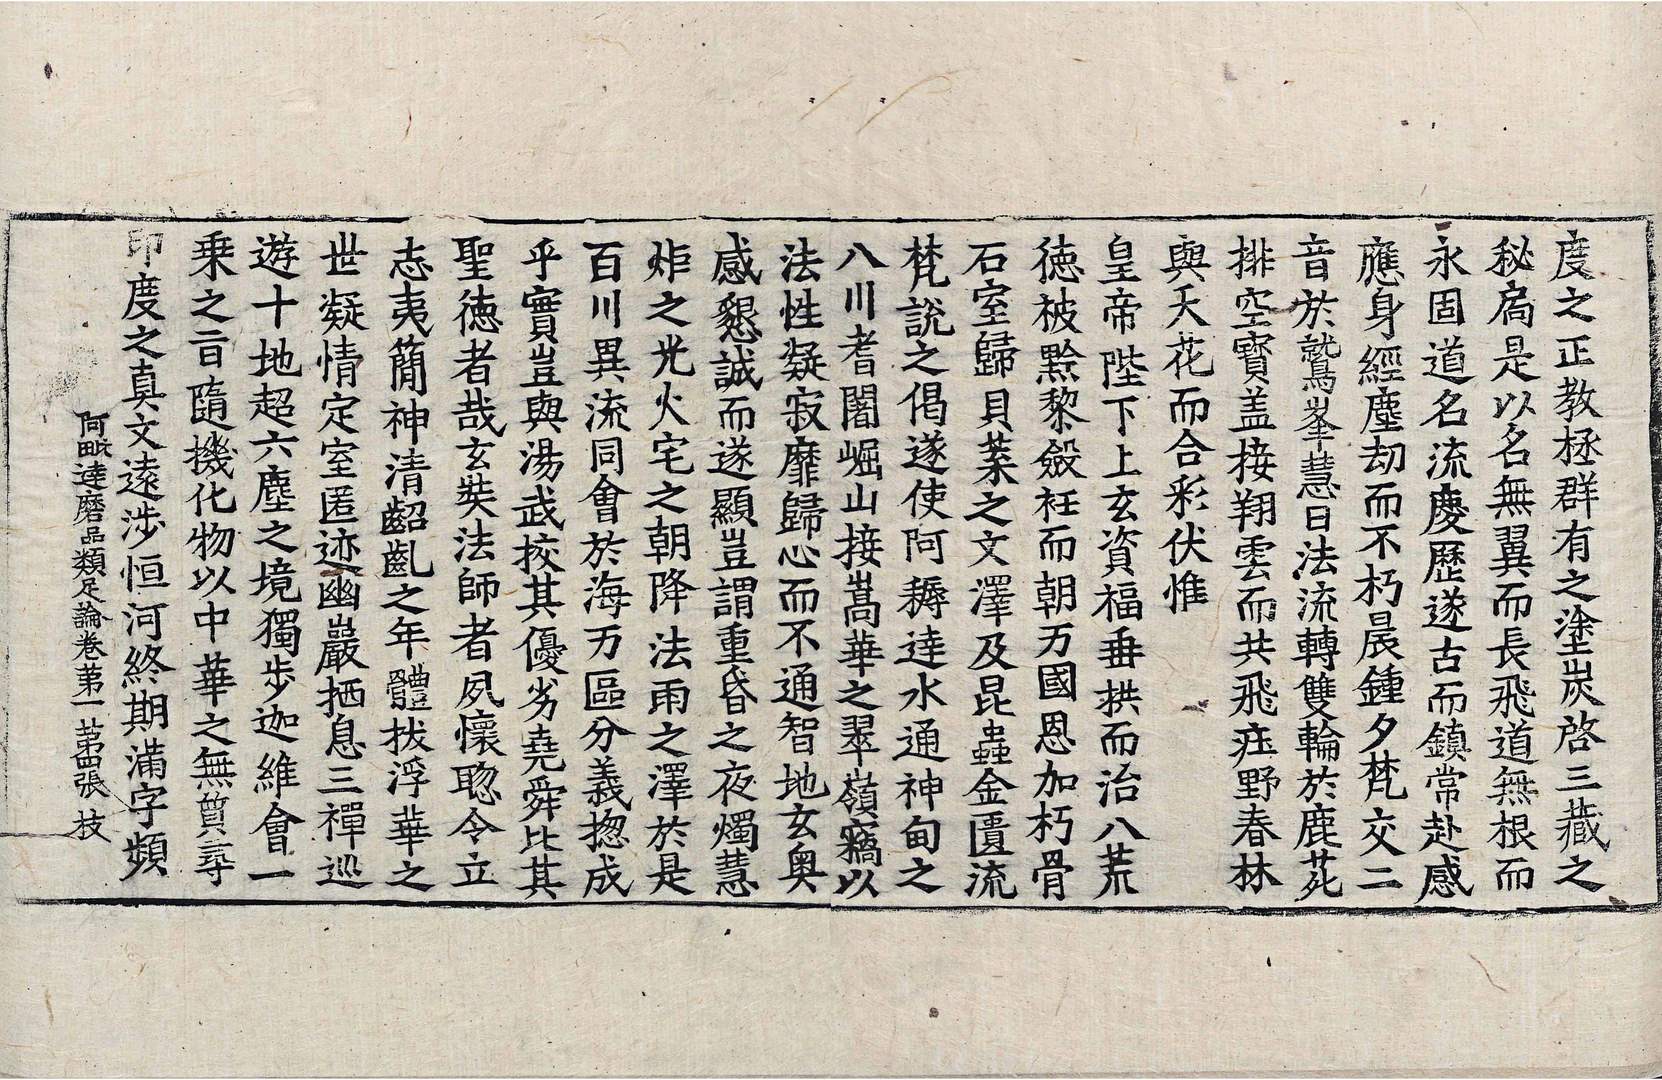 度之正教拯群有之塗炭啓三藏之
秘扃是以名無翼而長飛道無根而
永固道名流慶歷遂古而鎮常赴感
應身經塵劫而不朽晨鍾夕梵交二
音於鷲峯慧日法流轉雙輪於鹿菀
排空寶盖接翔雲而共飛庄野春林
與天花而合彩伏惟
皇帝陛下上玄資福垂拱而治八荒
徳被黔黎斂衽而朝万國恩加朽骨
石室歸貝葉之文澤及昆蟲金匱流
梵説之偈遂使阿耨達水通神甸之
八川耆闍崛山接嵩華之翠嶺竊以
法性凝寂靡歸心而不通智地玄奥
感懇誠而遂顯豈謂重昏之夜燭慧
炬之光火宅之朝降法雨之澤於是
百川異流同會於海万區分義揔成
乎實豈與湯武挍其優劣堯舜比其
聖徳者哉玄奘法師者夙懷聦令立
志夷簡神清齠齔之年體拔浮華之
世凝情定室匿迹幽巖栖息三禪巡
遊十地超六塵之境獨步迦維會一
乗之旨隨機化物以中華之無質尋
印度之真文遠涉恒河終期滿字頻
阿毗達磨品類足論卷苐一 苐四張 技